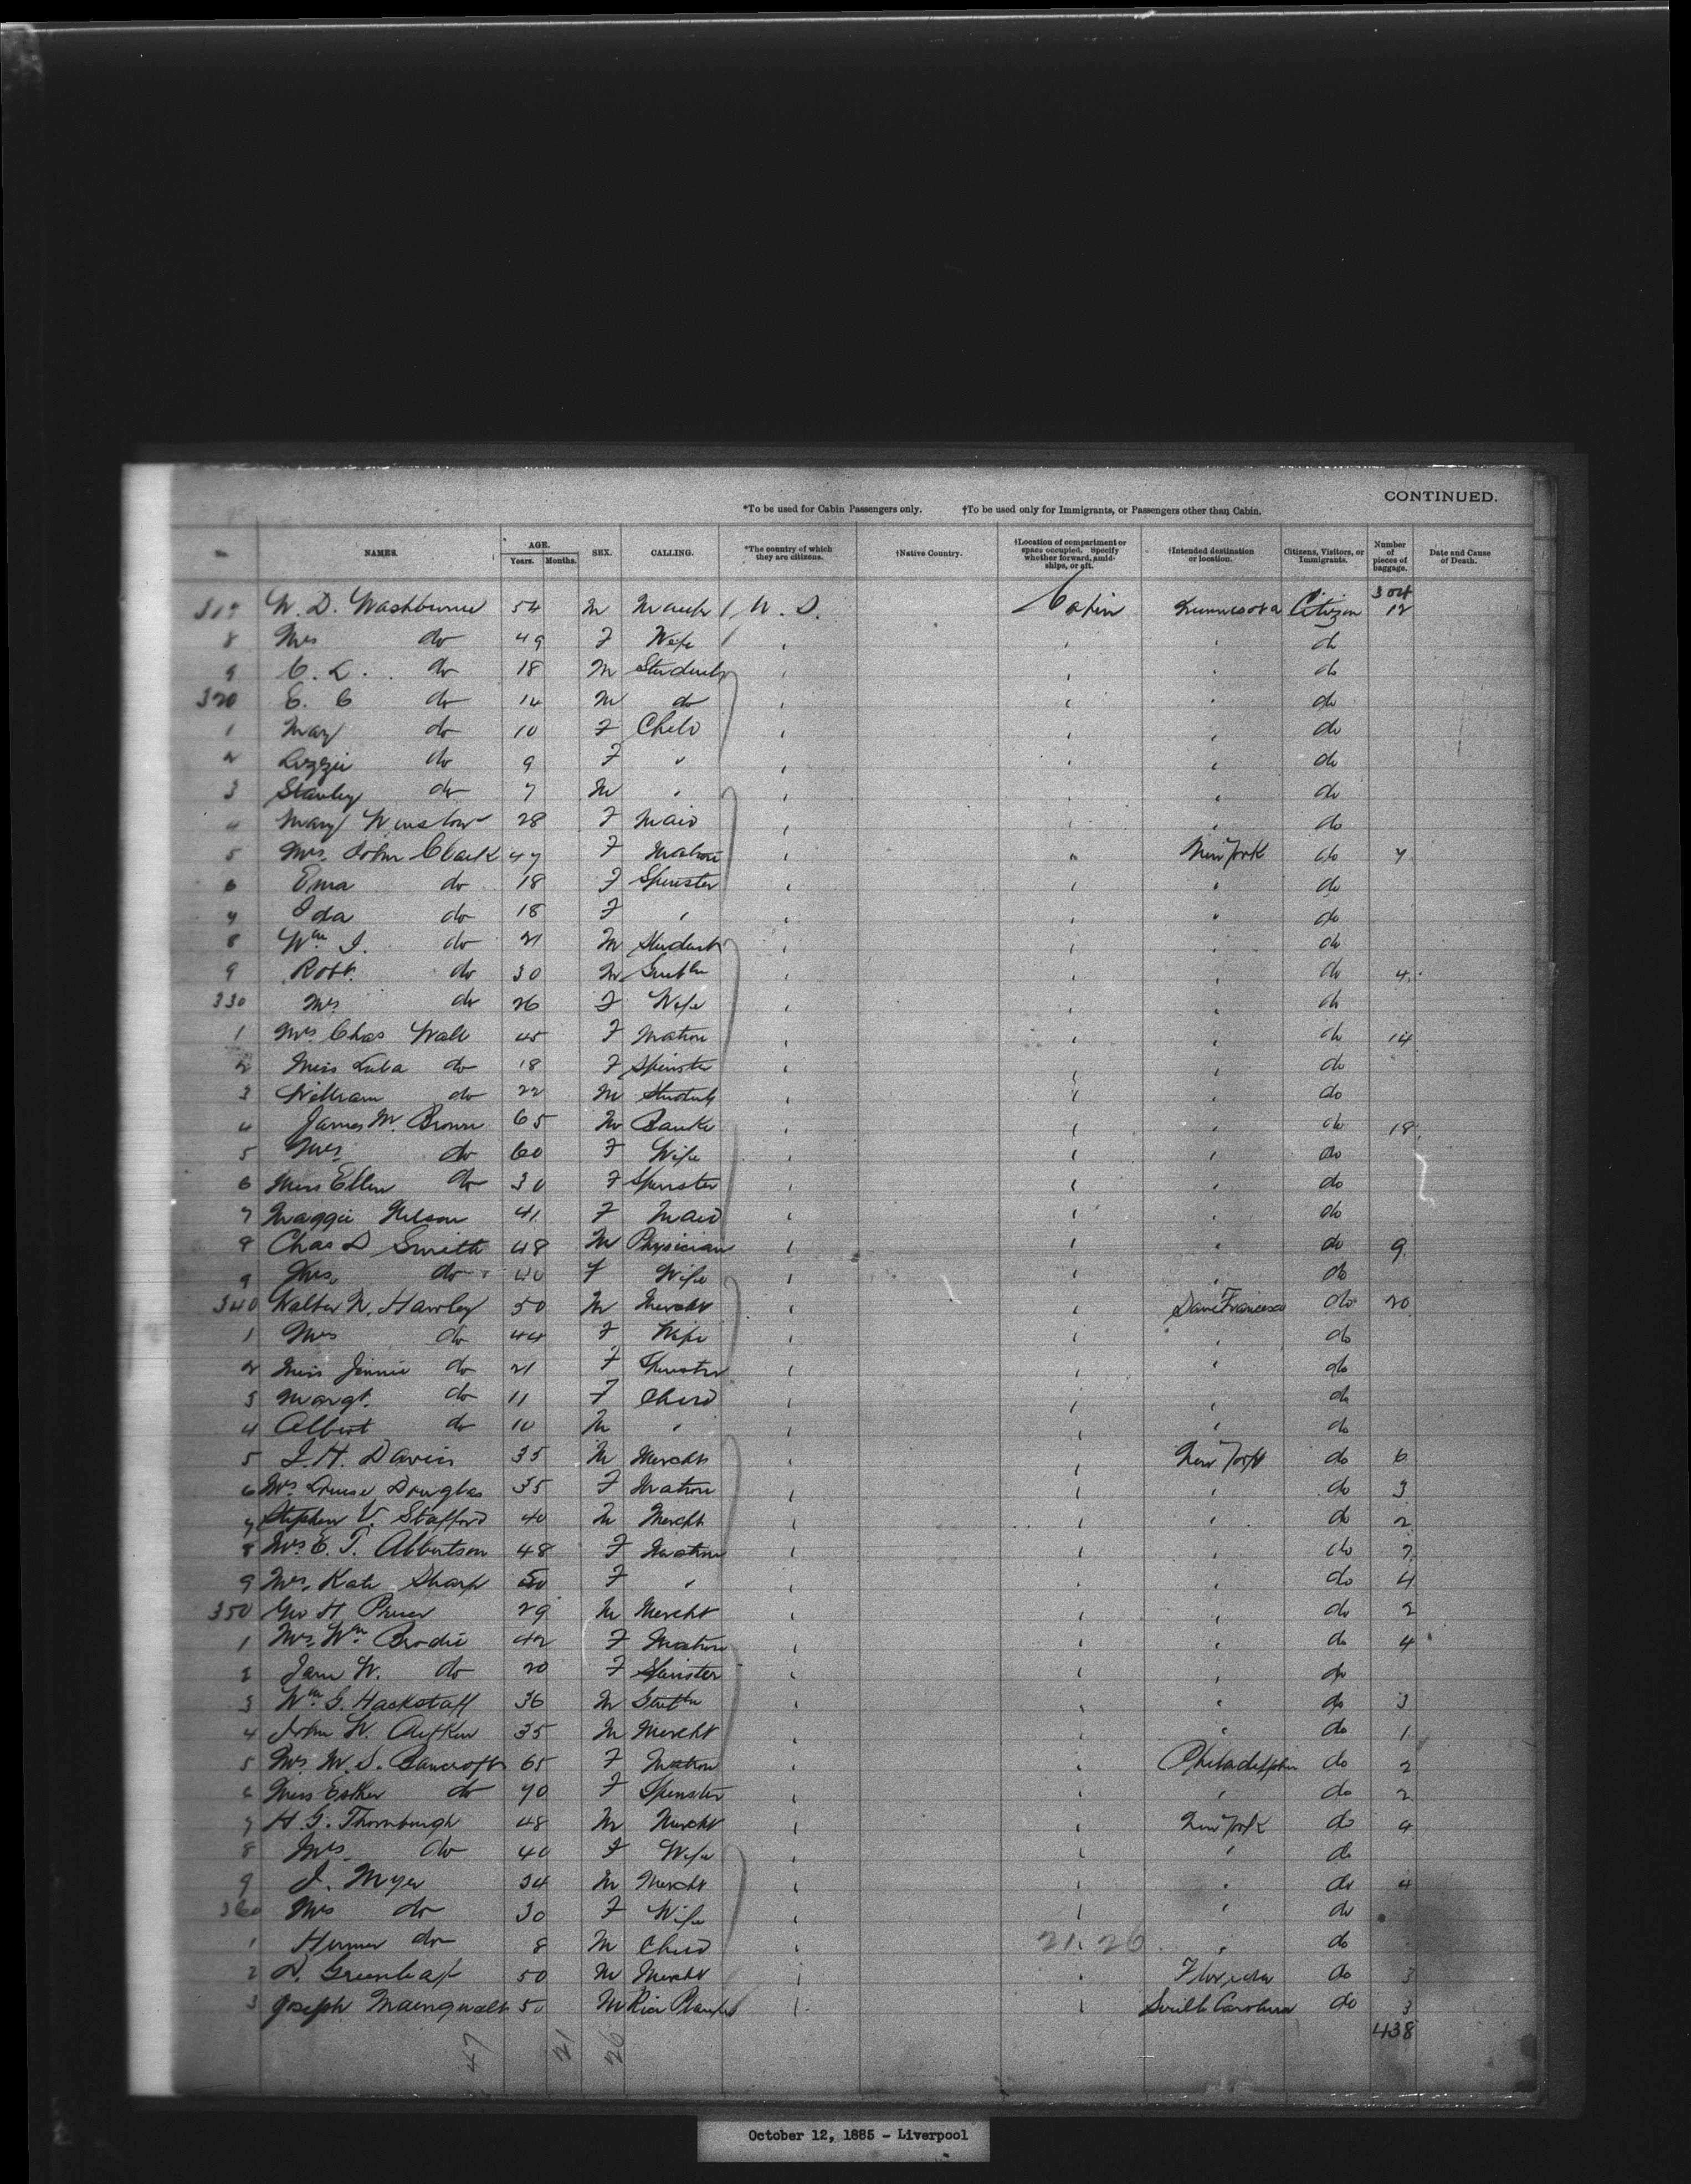 CONTINUED.
*To be used for Cabin Passengers only. †To be used only for Immigrants, or Passengers other than Cabin.
NAMES. AGE. Years. Months. SEX. CALLING. *The country of which they are citizens. †Native Country. †Location of compartment or space occupied. Specify whether forward, amidships, or aft. †Intended destination or location. Citizens, Visitors, or Immigrants. Number of pieces of baggage. Date and Cause of Death.
317 W. D. Washburne 54 M U. S. Cabin Minnesota Citizen 12
8 Mrs do 49 F Wife do
9 C. L. do 18 M Student do
320 E. C do 14 M do do
1 May do 10 F Child do
2 Lizzie do 9 F " do
3 Stanley do 7 M " do
4 Mary Winslow 28 F Maid do
5 Mrs. John Clark 47 F Matron " New York do 7
6 Ema do 18 F Spinster do
7 Ida do 18 F " do
8 Wm J. do 21 M Student do
9 Robt. do 30 M Gentln do 4
330 Mrs do 26 F Wife do
1 Mrs Chas Wall 45 F Matron do 14
2 Miss Lula do 18 F Spinster do
3 William do 22 M Student do
4 James M. Brown 65 M Banker do 18
5 Mrs do 60 F Wife do
6 Miss Ellen do 30 F Spinster do
7 Maggie Nelson 41 F Maid do
8 Chas D Smith 48 M Physician do 9
9 Mrs do 40 F Wife do
340 Walter N. Hawley 50 M Mercht San Francisco do 20
1 Mrs do 44 F Wife do
2 Miss Jennie do 21 F Spinster do
3 Margt. do 11 F Child do
4 Albert do 10 M " do
5 J. H. Davis 35 M Mercht New York do 6
6 Mrs Louise Douglas 35 F Matron do 3
7 Stephen V. Stafford 40 M Mercht do 2
8 Mrs E. T. Albertson 48 F Matron do 7
9 Mrs. Kate Sharp 50 F " do 4
350 Geo H 29 M Mercht do 2
1 Mrs. Wm Brodie 42 F Matron do 4
2 Jane W. do 20 F Spinster do
3 Wm G. Hackstaff 36 M Gentln do 3
4 John W. Aitken 35 M Mercht do 1
5 Mrs. M. S. Bancroft 65 F Matron Philadelphia do 2
6 Miss Esther do 40 F Spinster do 2
7 H. G. Thornburgh 48 M Mercht New York do 4
8 Mrs. do 40 F Wife do
9 J. Myer 34 M Mercht do 4
360 Mrs do 30 F Wife do
1 do 8 M Child 21 26 do
2 D. Greenleaf 50 M Mercht Florida do 3
3 Joseph 50 M Rice South Carolina do 3
438
47 21 26
October 12, 1885 - Liverpool